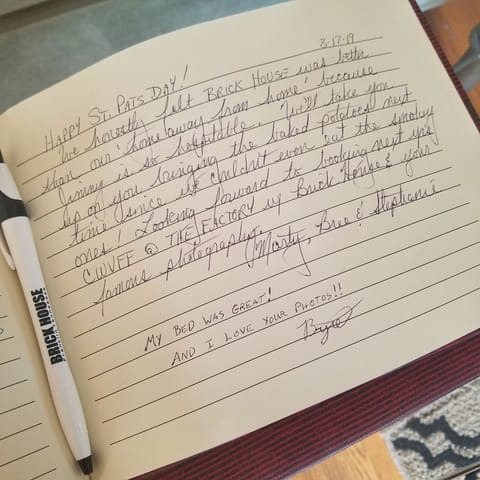 3-17-19
HAPPY ST. PATS. DAY!
We honestly felt BRICK HOUSE was better
than our "home away from home" because
Jimmy is so hospitable. We'll take you
up on you bringing the baked potatoes next
time since we couldn't even eat the smokey
ones! Looking forward to booking next yr's
CWVFF @ THE FACTORY w/ Brick House & your
famous photography.
Marty, Bree & Stephanie
MY BED WAS GREAT!
AND I LOVE YOUR PHOTOS!!
BRICK HOUSE